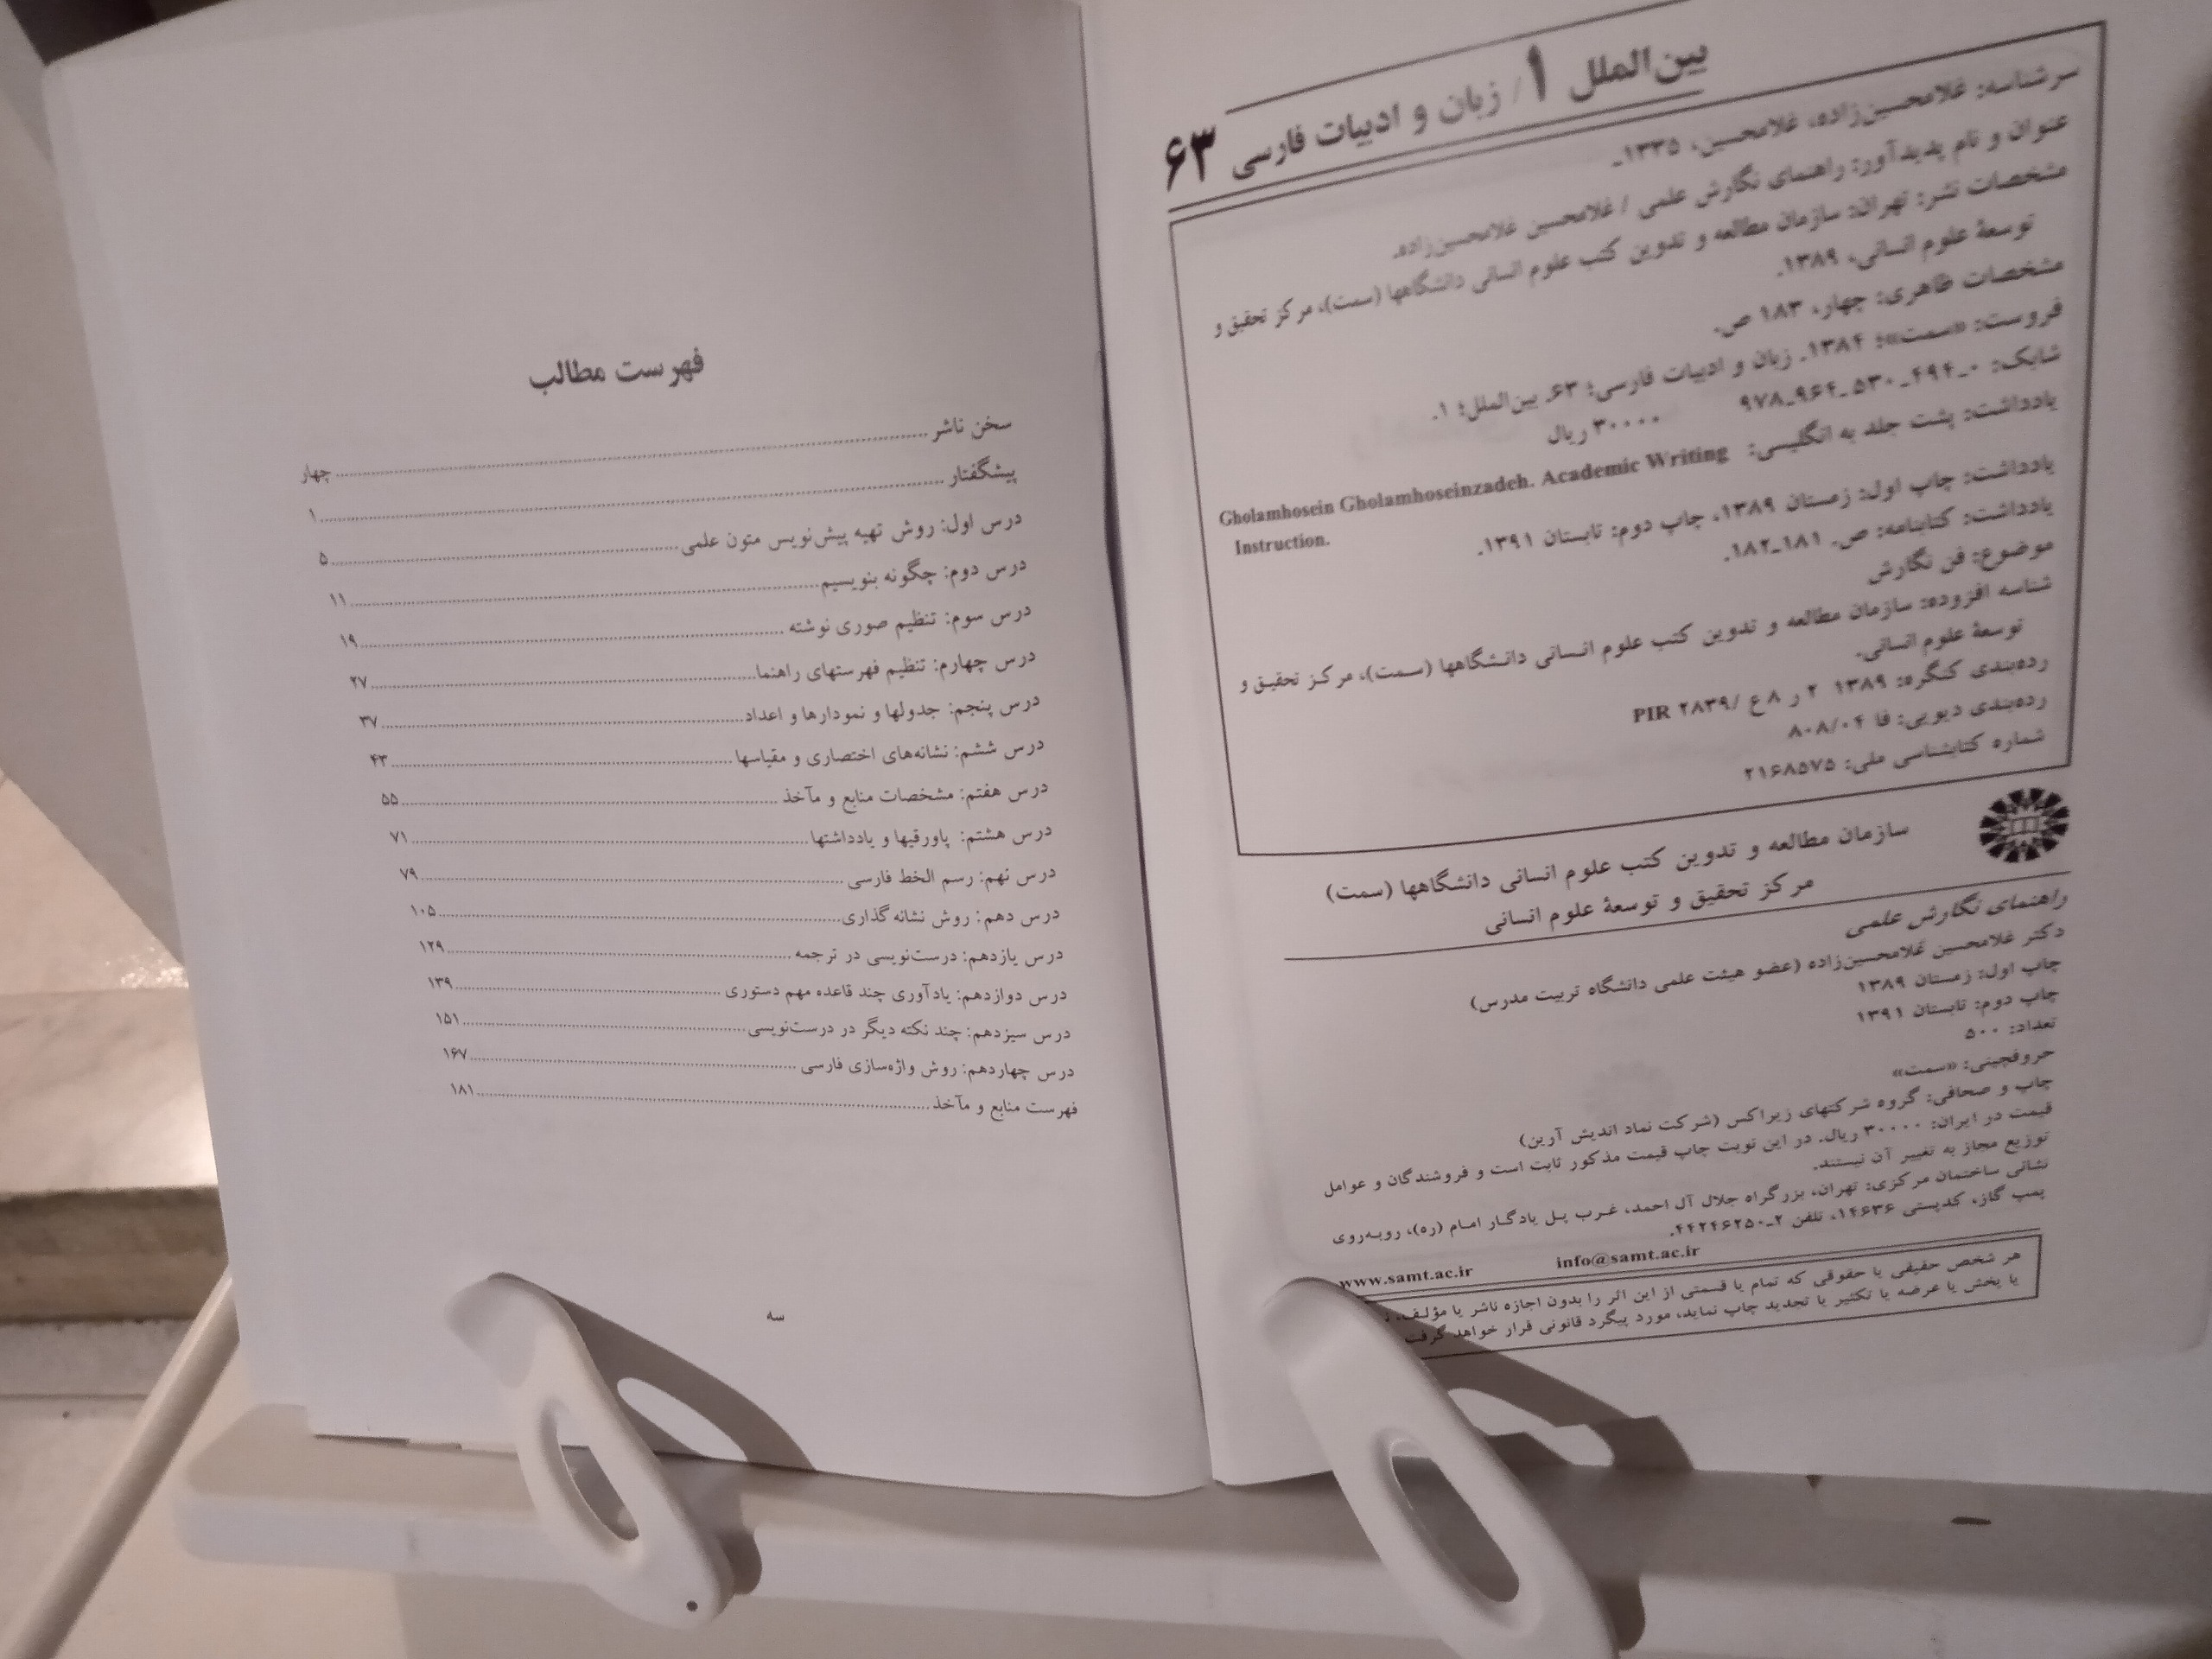 بین‌الملل ۱/ زبان و ادبیات فارسی ۶۳
سرشناسه: غلامحسین‌زاده، غلامحسین، ۱۳۳۵ـ
عنوان و نام پدیدآور: راهنمای نگارش علمی / غلامحسین غلامحسین‌زاده.
مشخصات نشر: تهران: سازمان مطالعه و تدوین کتب علوم انسانی دانشگاهها (سمت)، مرکز تحقیق و
توسعۀ علوم انسانی، ۱۳۸۹.
مشخصات ظاهری: چهار، ۱۸۳ ص.
فروست: «سمت»؛ ۱۳۸۴. زبان و ادبیات فارسی؛ ۶۳. بین‌الملل؛ ۱.
شابک: ۰ـ۴۹۴ـ۵۳۰ـ۹۶۴ـ۹۷۸ ۳۰۰۰۰ ریال
یادداشت: پشت جلد به انگلیسی: Gholamhosein Gholamhoseinzadeh. Academic Writing
Instruction.
یادداشت: چاپ اول: زمستان ۱۳۸۹، چاپ دوم: تابستان ۱۳۹۱.
یادداشت: کتابنامه: ص. ۱۸۱ـ۱۸۲.
موضوع: فن نگارش
شناسه افزوده: سازمان مطالعه و تدوین کتب علوم انسانی دانشگاهها (سمت)، مرکز تحقیق و
توسعۀ علوم انسانی.
رده‌بندی کنگره: ۱۳۸۹ ۲ ر ۸ ع /۲۸۳۹ PIR
رده‌بندی دیویی: فا ۸۰۸/۰۴
شماره کتابشناسی ملی: ۲۱۶۸۵۷۵
سازمان مطالعه و تدوین کتب علوم انسانی دانشگاهها (سمت)
مرکز تحقیق و توسعۀ علوم انسانی
راهنمای نگارش علمی
دکتر غلامحسین غلامحسین‌زاده (عضو هیئت علمی دانشگاه تربیت مدرس)
چاپ اول: زمستان ۱۳۸۹
چاپ دوم: تابستان ۱۳۹۱
تعداد: ۵۰۰
حروفچینی: «سمت»
چاپ و صحافی: گروه شرکتهای زیراکس (شرکت نماد اندیش آرین)
قیمت در ایران: ۳۰۰۰۰ ریال. در این نوبت چاپ قیمت مذکور ثابت است و فروشندگان و عوامل
توزیع مجاز به تغییر آن نیستند.
نشانی ساختمان مرکزی: تهران، بزرگراه جلال آل احمد، غرب پل یادگار امام (ره)، روبه‌روی
پمپ گاز، کدپستی ۱۴۶۳۶، تلفن ۲ـ۴۴۲۴۶۲۵۰.
www.samt.ac.ir info@samt.ac.ir
هر شخص حقیقی یا حقوقی که تمام یا قسمتی از این اثر را بدون اجازه ناشر یا مؤلف،
یا پخش یا عرضه یا تکثیر یا تجدید چاپ نماید، مورد پیگرد قانونی قرار خواهد گرفت
فهرست مطالب
سخن ناشر ........ چهار
پیشگفتار ........ ۱
درس اول: روش تهیه پیش‌نویس متون علمی ........ ۵
درس دوم: چگونه بنویسیم ........ ۱۱
درس سوم: تنظیم صوری نوشته ........ ۱۹
درس چهارم: تنظیم فهرستهای راهنما ........ ۲۷
درس پنجم: جدولها و نمودارها و اعداد ........ ۳۷
درس ششم: نشانه‌های اختصاری و مقیاسها ........ ۴۳
درس هفتم: مشخصات منابع و مآخذ ........ ۵۵
درس هشتم: پاورقیها و یادداشتها ........ ۷۱
درس نهم: رسم الخط فارسی ........ ۷۹
درس دهم: روش نشانه گذاری ........ ۱۰۵
درس یازدهم: درست‌نویسی در ترجمه ........ ۱۲۹
درس دوازدهم: یادآوری چند قاعده مهم دستوری ........ ۱۳۹
درس سیزدهم: چند نکته دیگر در درست‌نویسی ........ ۱۵۱
درس چهاردهم: روش واژه‌سازی فارسی ........ ۱۶۷
فهرست منابع و مآخذ ........ ۱۸۱
سه